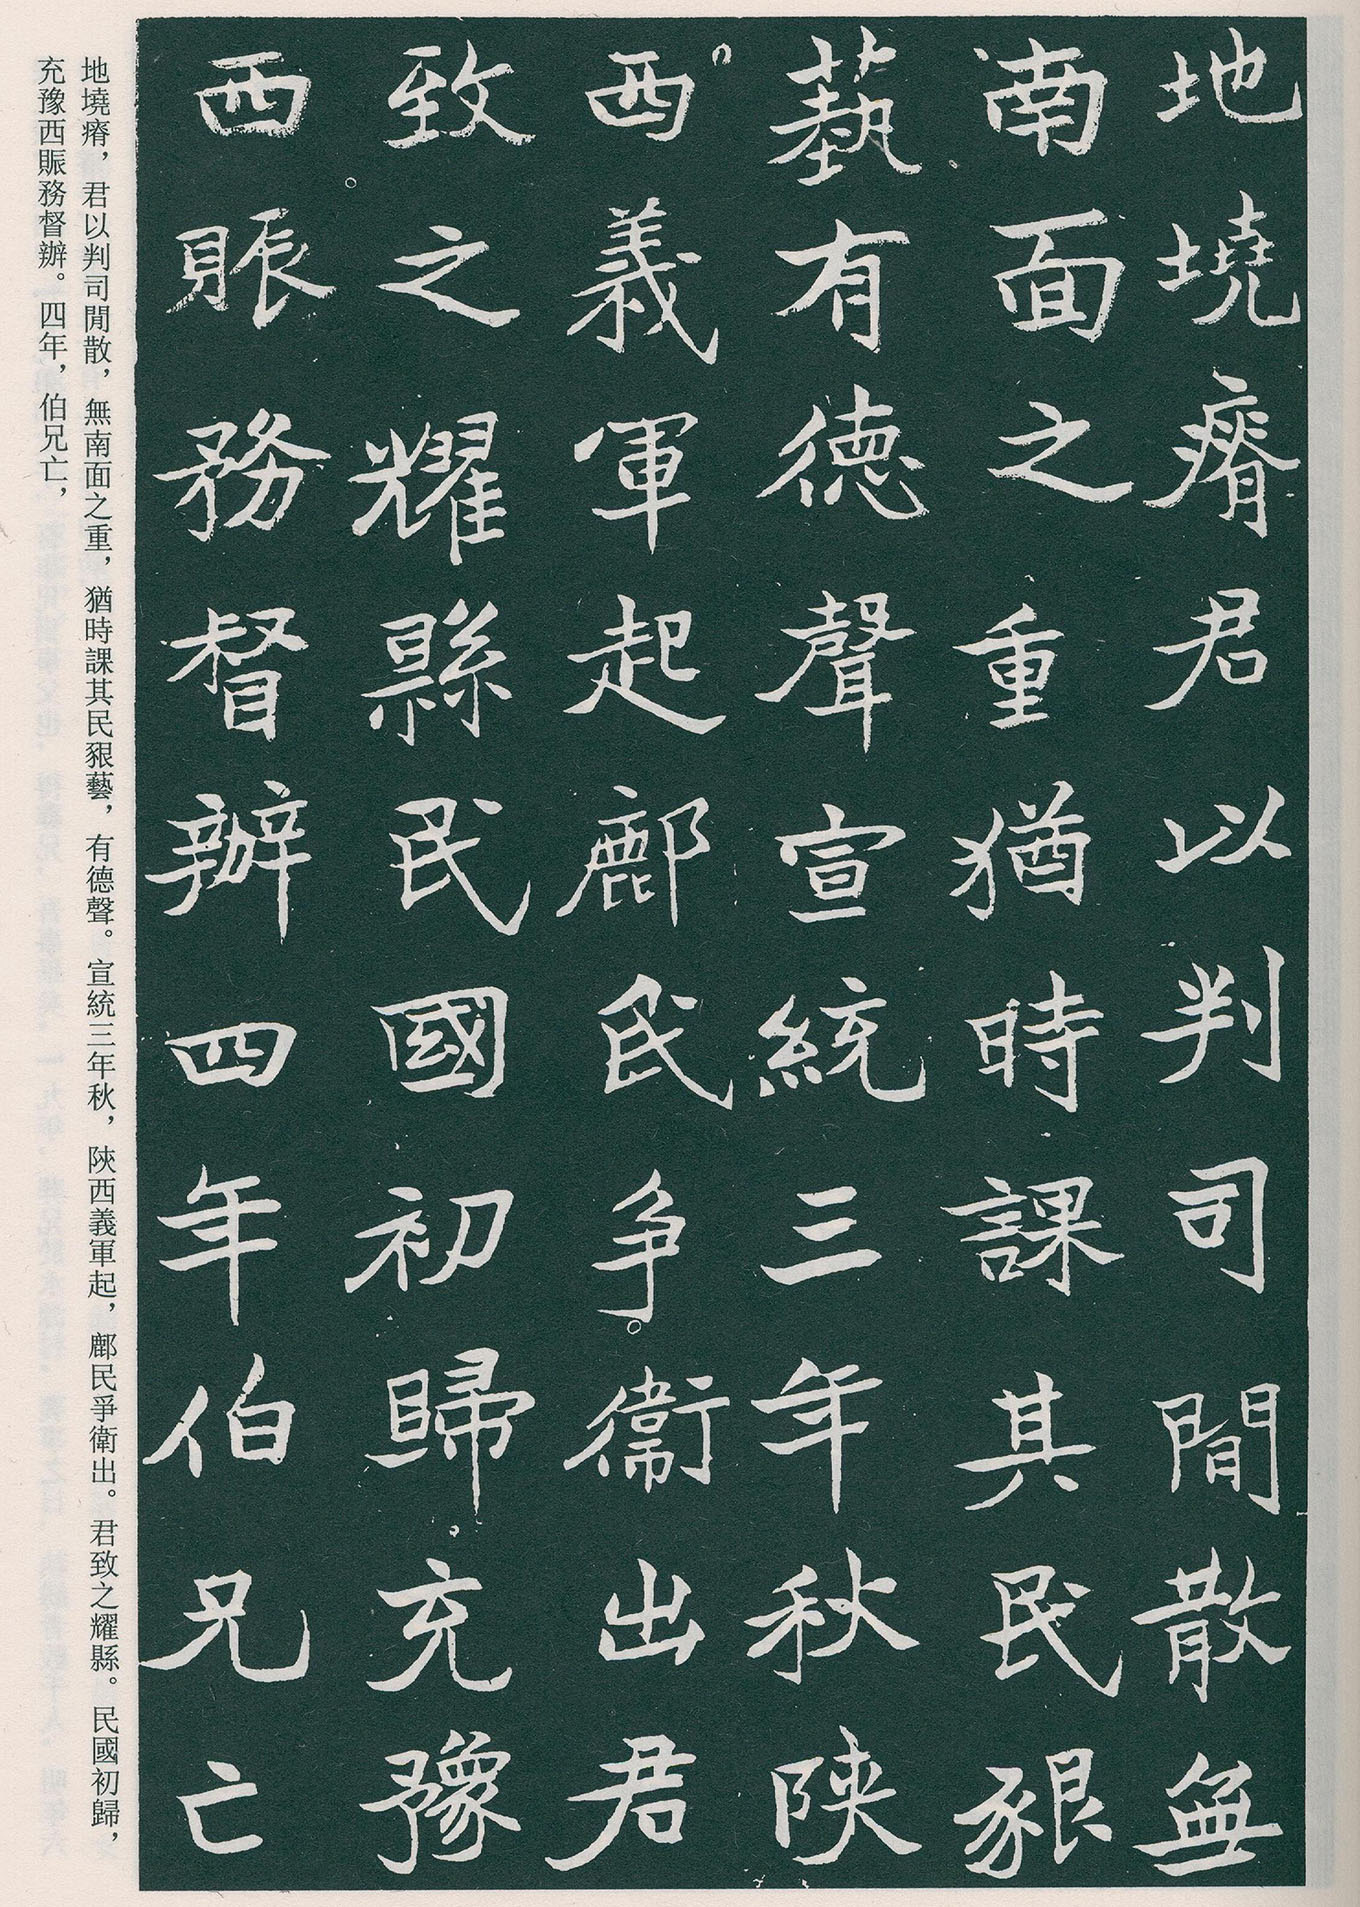 地墝瘠君以判司閒散無
南面之重猶時課其民豤
藝有德聲宣統三年秋陝
西義軍起鄜民爭衛出君
致之耀縣民國初歸充豫
西賑務督辦四年伯兄亡
地墝瘠，君以判司閒散，無南面之重，猶時課其民豤藝，有德聲。宣統三年秋，陝西義軍起，鄜民爭衛出。君致之耀縣。民國初歸，
充豫西賑務督辦。四年，伯兄亡，